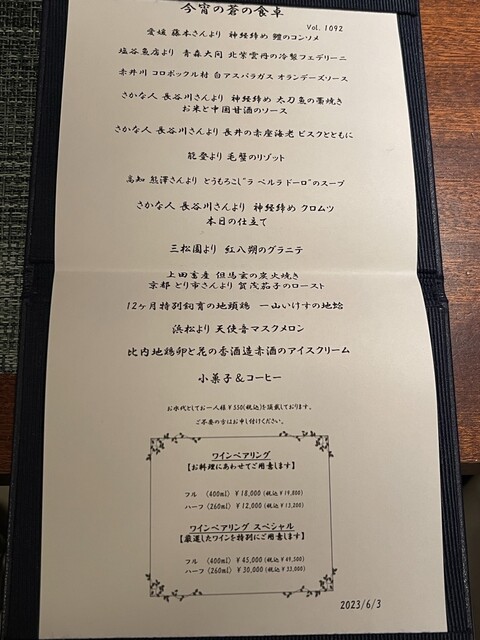 今宵の蒼の食卓
Vol. 1092
愛媛 藤本さんより 神経締め 鱧のコンソメ
塩谷魚店より 青森大間 北紫雲丹の冷製フェデリーニ
赤井川 コロポックル村 白アスパラガス オランデーズ・ソース
さかな人 長谷川さんより 神経締め 太刀魚の藁焼き
お米と中国甘酒のソース
さかな人 長谷川さんより 長井の赤座海老 ビスクとともに
能登より 毛蟹のリゾット
高知 熊澤さんより とうもろこし"ラ ベルラ ドーロ"のスープ
さかな人 長谷川さんより 神経締め クロムツ
本日の仕立て
三松園より 紅八朔のグラニテ
上田畜産 但馬玄の炭火焼き
京都 とり市さんより 賀茂茄子のロースト
12ヶ月特別飼育の地頭鶏 一山いけすの地鯰
浜松より 天使音マスクメロン
比内地鶏卵と花の香酒造赤酒のアイスクリーム
小菓子&コーヒー
お水代としてお一人様¥550(税込)を頂戴しております。
ご不要の方はお申し付けください。
ワインペアリング
【お料理にあわせてご用意します】
フル (400ml) ¥18,000 (税込¥19,800)
ハーフ (260ml) ¥12,000 (税込¥13,200)
ワインペアリング スペシャル
【厳選したワインを特別にご用意します】
フル (400ml) ¥45,000 (税込¥49,500)
ハーフ (260ml) ¥30,000 (税込¥33,000)
2023/6/3